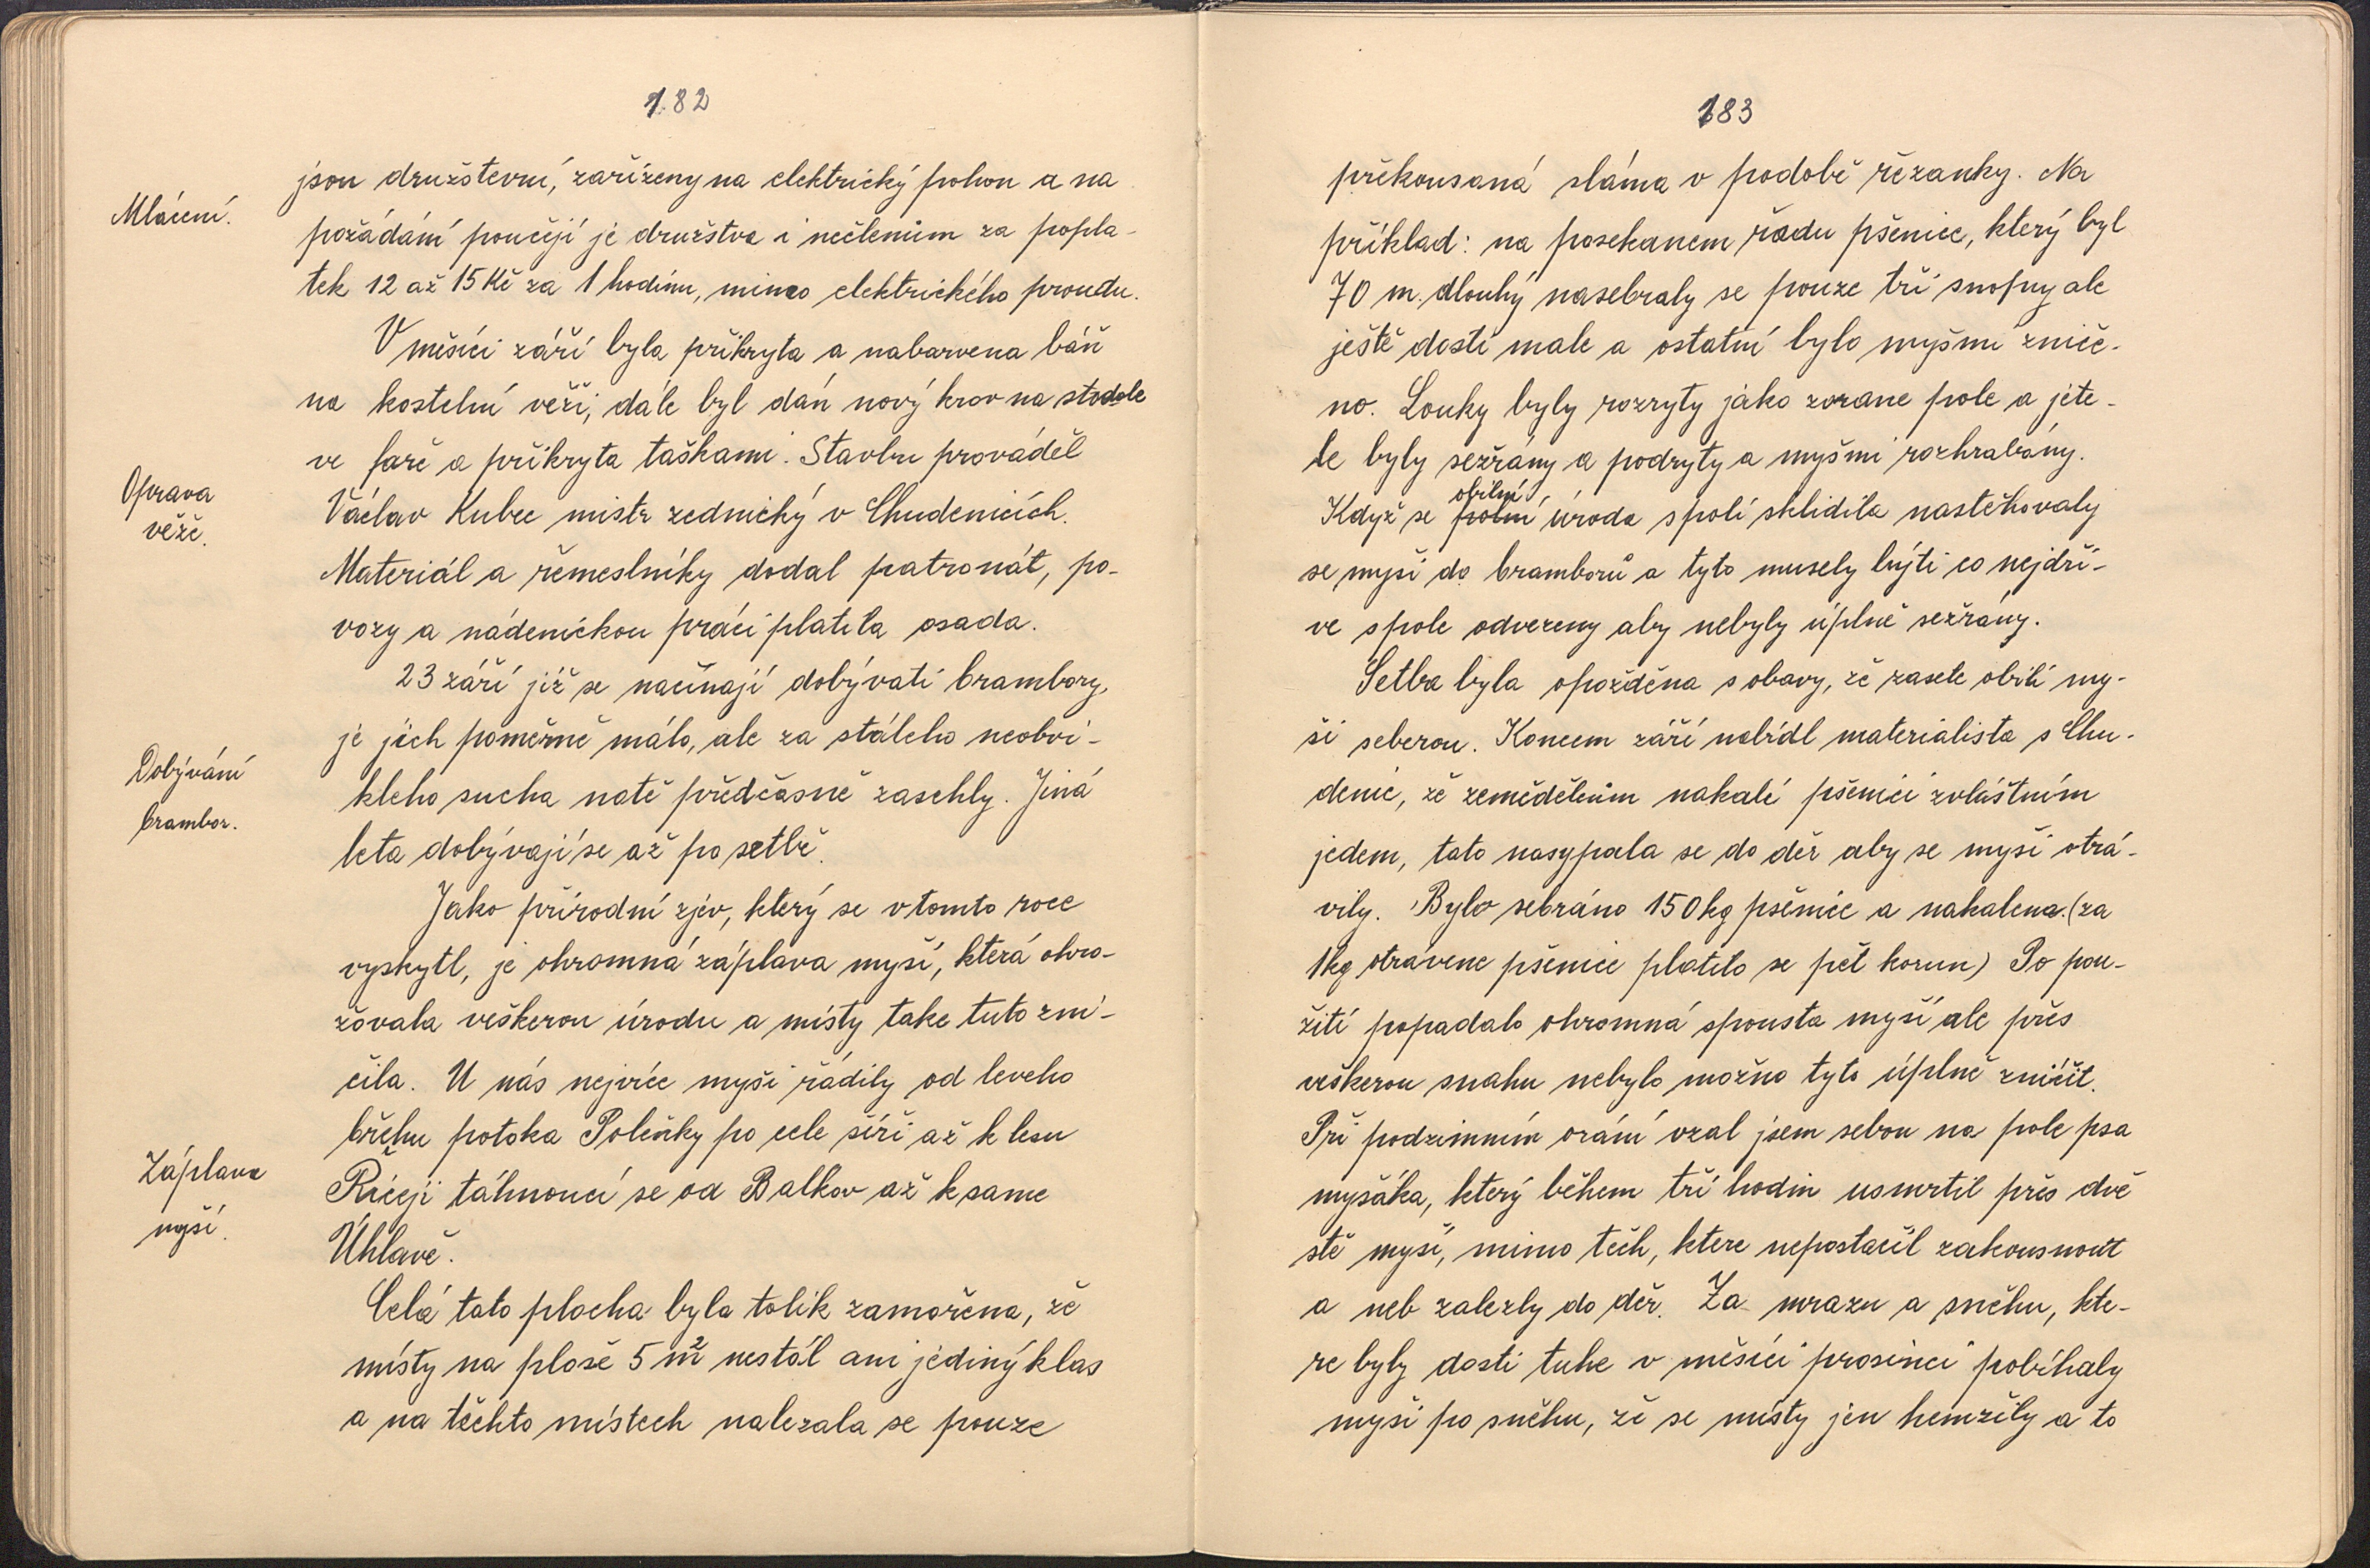 182
Mlácení.
jsou družstevní, zařízeny na elektrický pohon a na
požádání poučejí je družstva i nečlenům za popla-
tek 12 až 15 Kč za 1 hodinu, mimo elektrického proudu.
V měsíci září byla přikryta a nabarvena báň
na kostelní věži, dále byl dán nový krov na stodole
ve faře a přikryta taškami. Stavbu prováděl
Oprava
věže.
Václav Kubec mistr zednický v Chudenicích.
Materiál a řemeslníky dodal patronát, po-
vozy a nádenickou práci platila osada.
23 září již se načínají dobývati brambory,
je jich poměrně málo, ale za stáleho neobvi-
Dobývání
brambor.
kleho sucha natě předčasně zaschly. Jiná
leta dobývají se až po setbě.
Jako přírodní zjev, který se v tomto roce
vyskytl, je ohromná záplava myší, která ohro-
žovala veškerou úrodu a místy take tuto zni-
čila. U nás nejvíce myši řádily od leveho
břehu potoka Poleňky po cele šíři až k lesu
Záplava
myší.
Říčeji táhnoucí se od Balkov až k same
Úhlavě.
Celá tato plocha byla tolik zamořena, že
místy na ploše 5 m² nestál ani jediný klas
a na těchto místech nalezala se pouze
183
překousaná sláma v podobě řezanky. Na
příklad: na posekanem řadu pšenice, který byl
70 m. dlouhý nasebraly se pouze tři snopy ale
ještě dosti male a ostatní bylo myšmi zniče-
no. Louky byly rozryty jako zorane pole a jete-
le byly sežrány a podryty a myšmi rozhrabány.
obilní
Když se polní úroda s polí sklidila nastěhovaly
se myši do bramborů a tyto musely býti co nejdří-
ve s pole odvezeny aby nebyly úplně sežrány.
Setba byla opožděna s obavy, že zasete obilí my-
ši seberou. Koncem září nabídl materialista s Chu-
denic, že zemědělcům nakalí pšenici zvláštním
jedem, tato nasypala se do děr aby se myši otrá-
vily. Bylo sebráno 150 kg pšenice a nakalena. (za
1 kg otrávene pšenice platilo se pět korun) Po pou-
žití popadalo ohromná spousta myší ale přes
veškerou snahu nebylo možno tyto úplně zničit.
Při podzimním orání vzal jsem sebou na pole psa
myšáka, který během tří hodin usmrtil přes dvě
stě myší, mimo těch, ktere nepostačil zakousnout
a neb zalezly do děr. Za mrazu a sněhu, kte-
re byly dosti tuhe v měsíci prosinci pobíhaly
myši po sněhu, že se místy jen hemžily a to